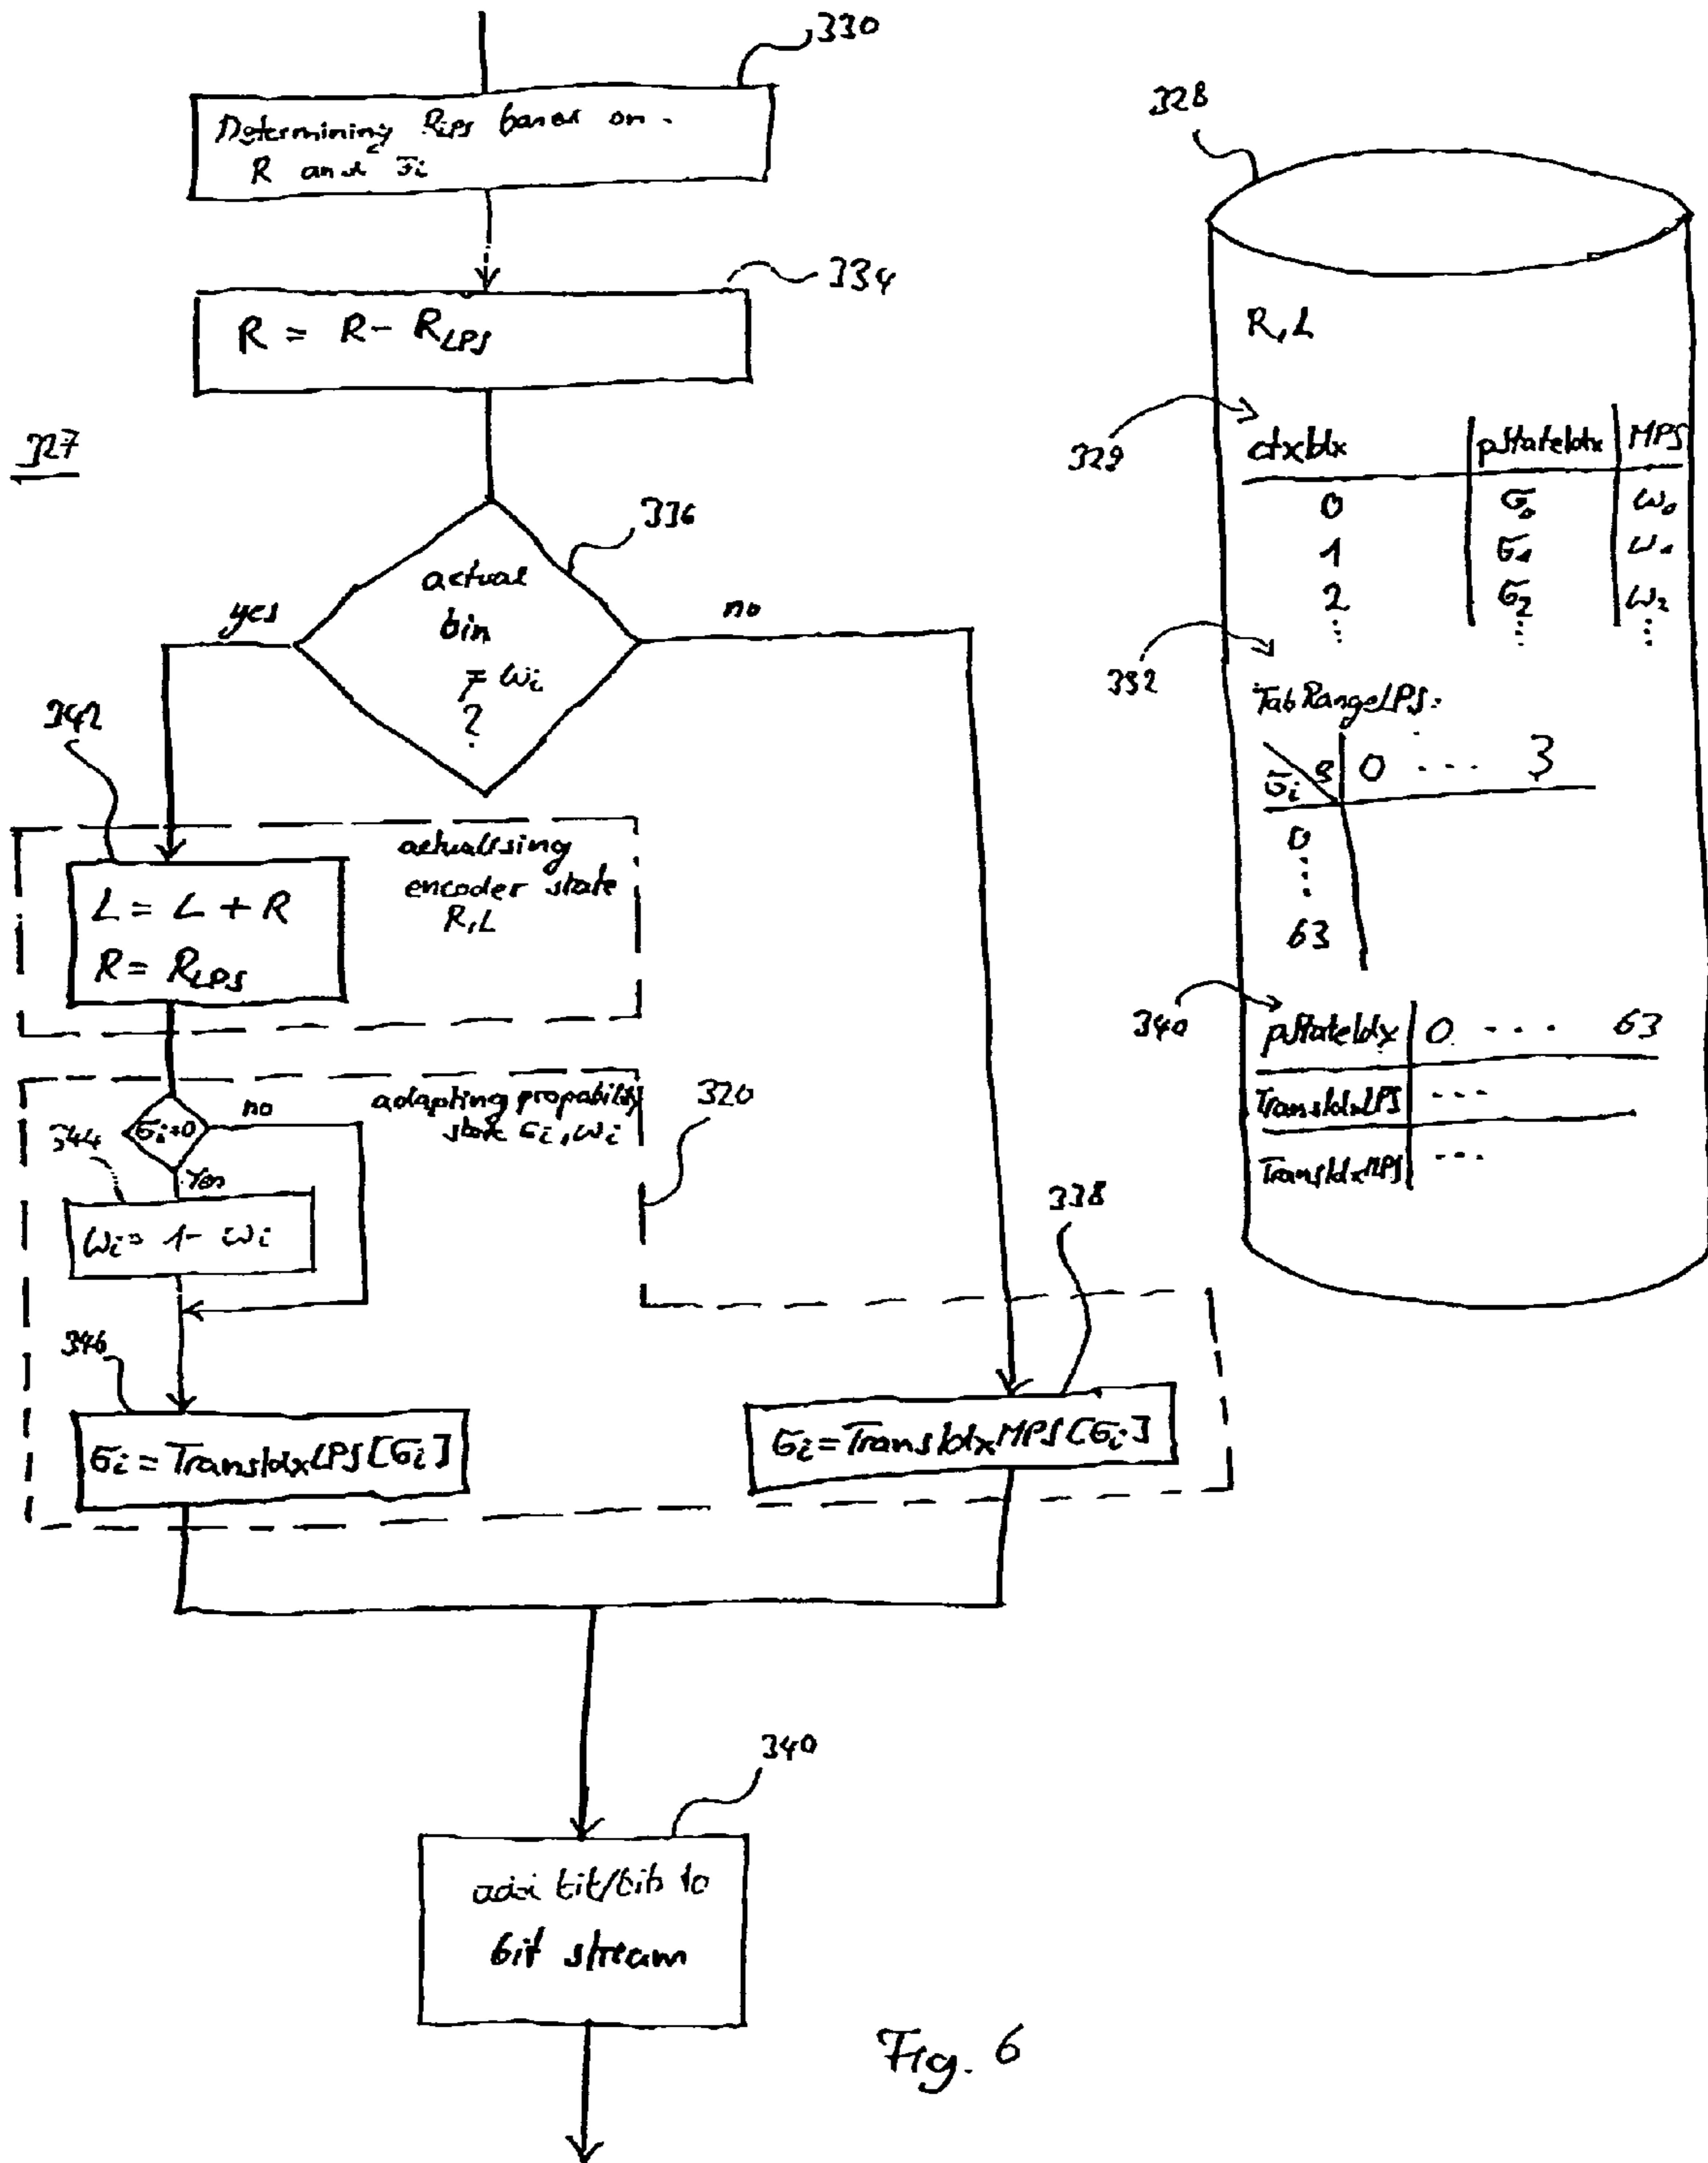 330
Determining R_LPS based on
R and σ_i
334
R = R - R_LPS
327
336
actual
bin
≠ ω_i
?
yes
no
342
actualising
encoder state
R,L
L = L + R
R = R_LPS
adapting propability
state σ_i, ω_i
320
σ_i=0
no
Yes
344
ω_i = 1 - ω_i
346
σ_i = TransIdxLPS[σ_i]
338
σ_i = TransIdxMPS[σ_i]
340
add bit/bits to
bit stream
328
R,L
329
ctxIdx pStateIdx MPS
0 σ_0 ω_0
1 σ_1 ω_1
2 σ_2 ω_2
⋮ ⋮ ⋮
332
TabRangeLPS:
σ_i 0 ... 3
0
⋮
63
340
pStateIdx 0 ... 63
TransIdxLPS ...
TransIdxMPS ...
Fig. 6